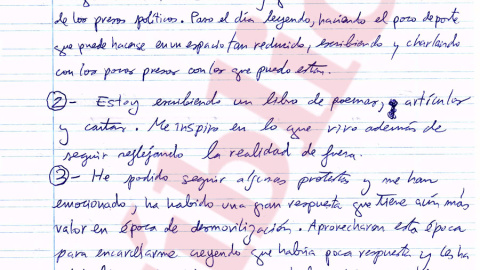 de los presos políticos. Paso el día leyendo, haciendo el poco deporte
que puede hacerse en un espacio tan reducido, escribiendo y charlando
con los pocos presos con los que puedo estar.
2- Estoy escribiendo un libro de poemas, artículos
y cartas. Me inspiro en lo que vivo además de
seguir reflejando la realidad de fuera.
3- He podido seguir algunas protestas y me han
emocionado, ha habido una gran respuesta que tiene aún más
valor en época de desmovilización. Aprovecharon esta época
para encarcelarme creyendo que habría poca respuesta y les ha